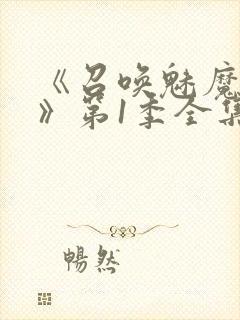 《召唤魅魔
》第1季全集
暢然